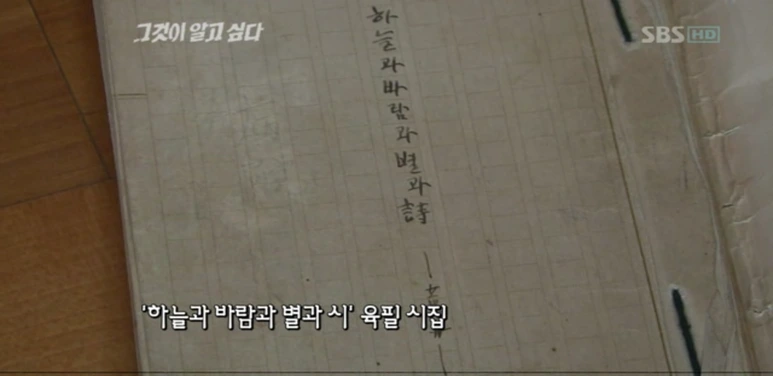 그것이 알고 싶다
SBS HD
하늘과바람과별과詩
'하늘과 바람과 별과 시' 육필 시집